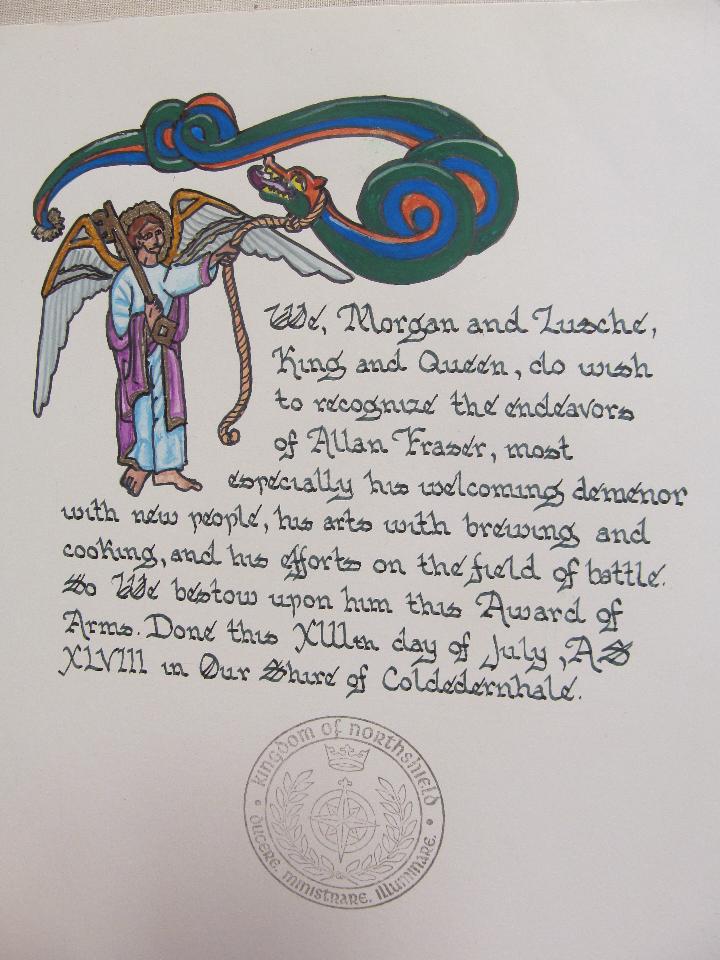 We, Morgan and Lusche,
King and Queen, do wish
to recognize the endeavors
of Allan Fraser, most
especially his welcoming demenor
with new people, his arts with brewing and
cooking, and his efforts on the field of battle.
So We bestow upon him this Award of
Arms. Done this XIIIth day of July, AS
XLVIII in Our Shire of Coldedernhale.
Kingdom of Northshield
Ducere. Ministrare. Illuminare.